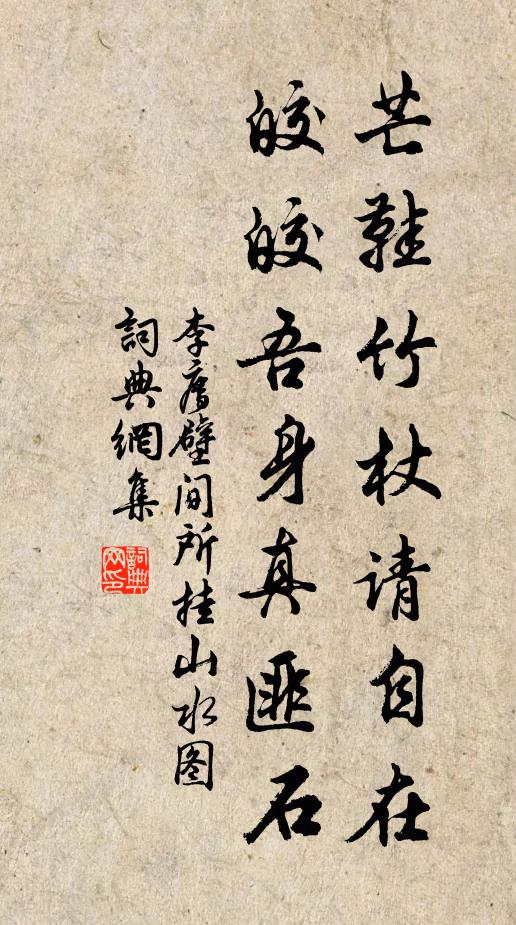 芒鞋竹杖请自在
皎皎吾身真匪石
李膺壁间所挂山水图
詞典網集
詞典网印